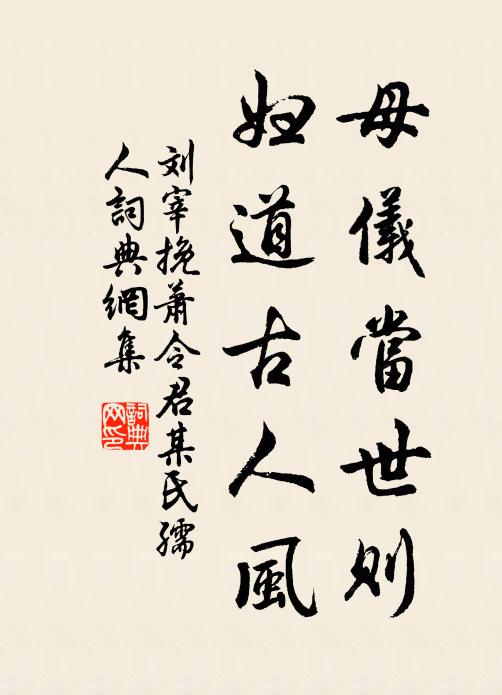 母儀當世則
妇道古人風
刘宰挽蕭令君某氏孺
人詞典網集
詞典网印